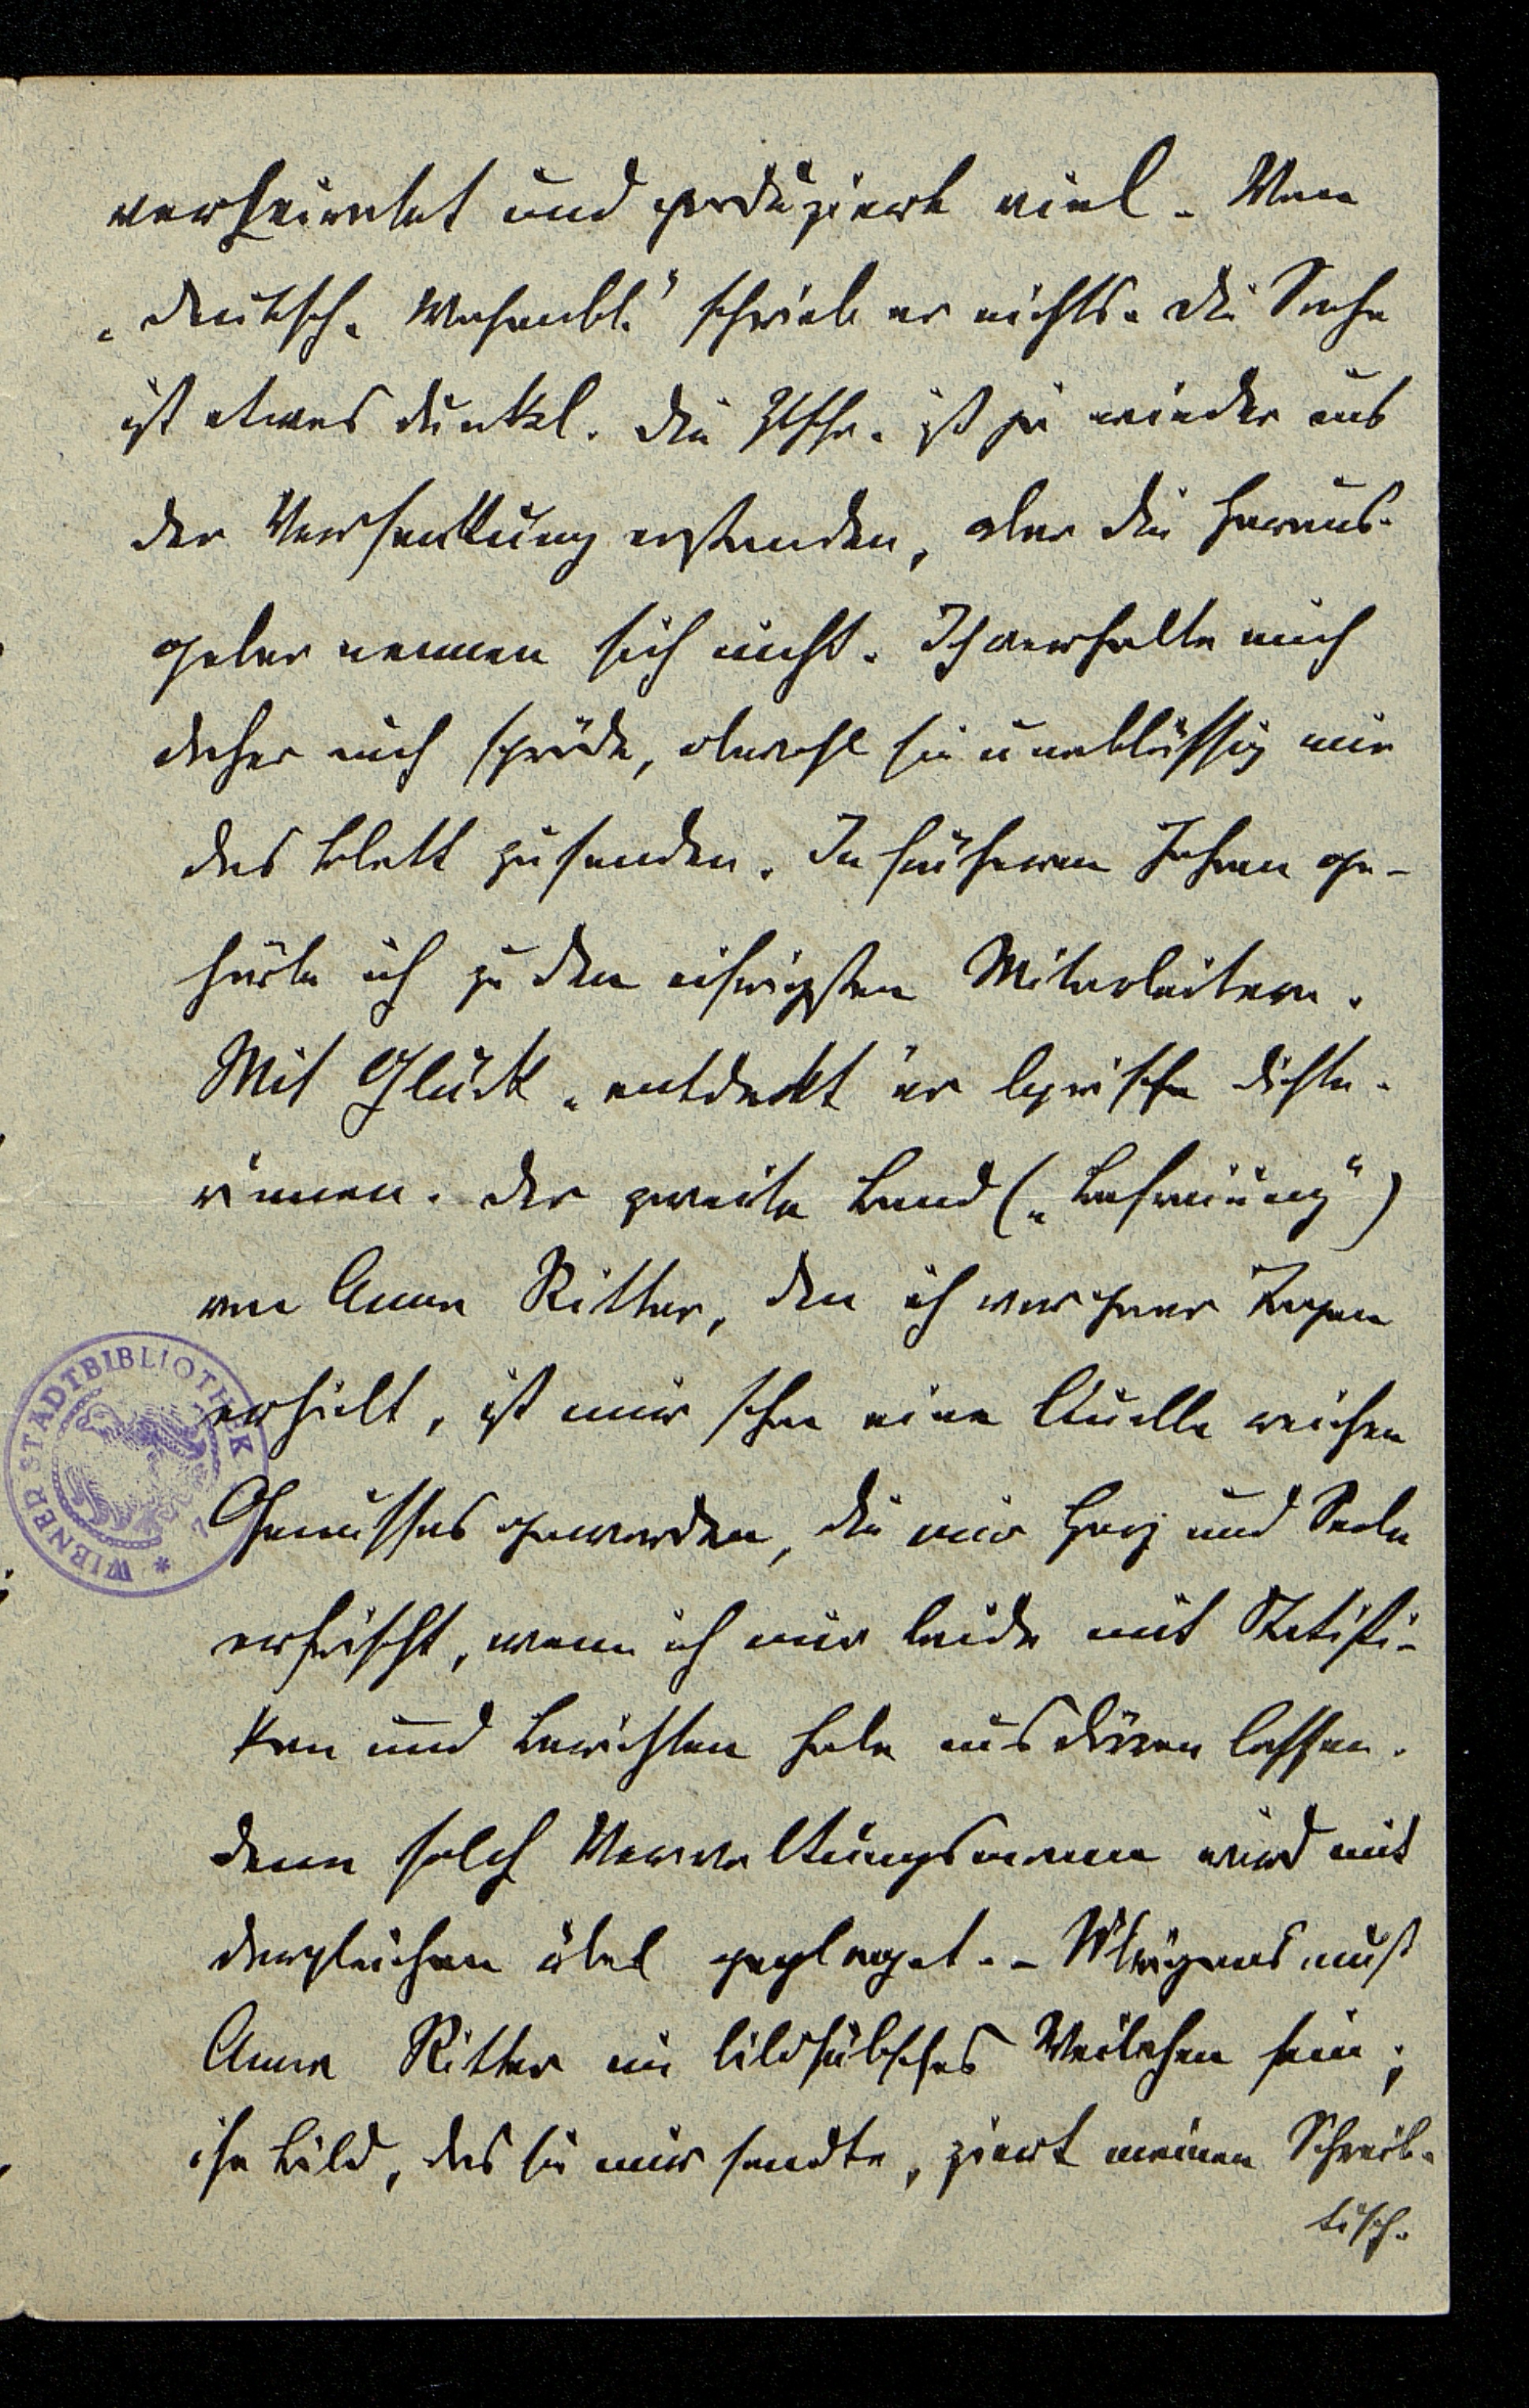 verheiratet und produziert viel. Vom
„Deutsch. Wochenbl.“ schrieb er nichts. Die Sache
ist etwas dunkel. Die Ztschr. ist ja wieder aus
der Versenkung erstanden, aber die Heraus-
geber nennen sich nicht. Ich verhalte mich
daher auch spröde, obwohl sie unablässig mir
das Blatt zusenden. In früheren Jahren ge-
hörte ich zu den eifrigsten Mitarbeitern.
Mit Glück „entdeckt“ er lyrische Dichte-
rinnen. Der zweite Band („Befreiung“)
von Anna Ritter, den ich vor paar Tagen
erhielt, ist mir schon eine Quelle reichen
Genusses geworden, die mir Herz und Seele
erfrischt, wenn ich mir beide mit Statisti-
ken und Berichten habe ausdörren lassen.
Denn solch Verwaltungsmann wird mit
dergleichen übel geplaget. – Übrigens muß
Anna Ritter ein bildhübsches Weibchen sein;
ihr Bild, das sie mir sandte, ziert meinen Schreib-
tisch.
WIENER STADTBIBLIOTHEK